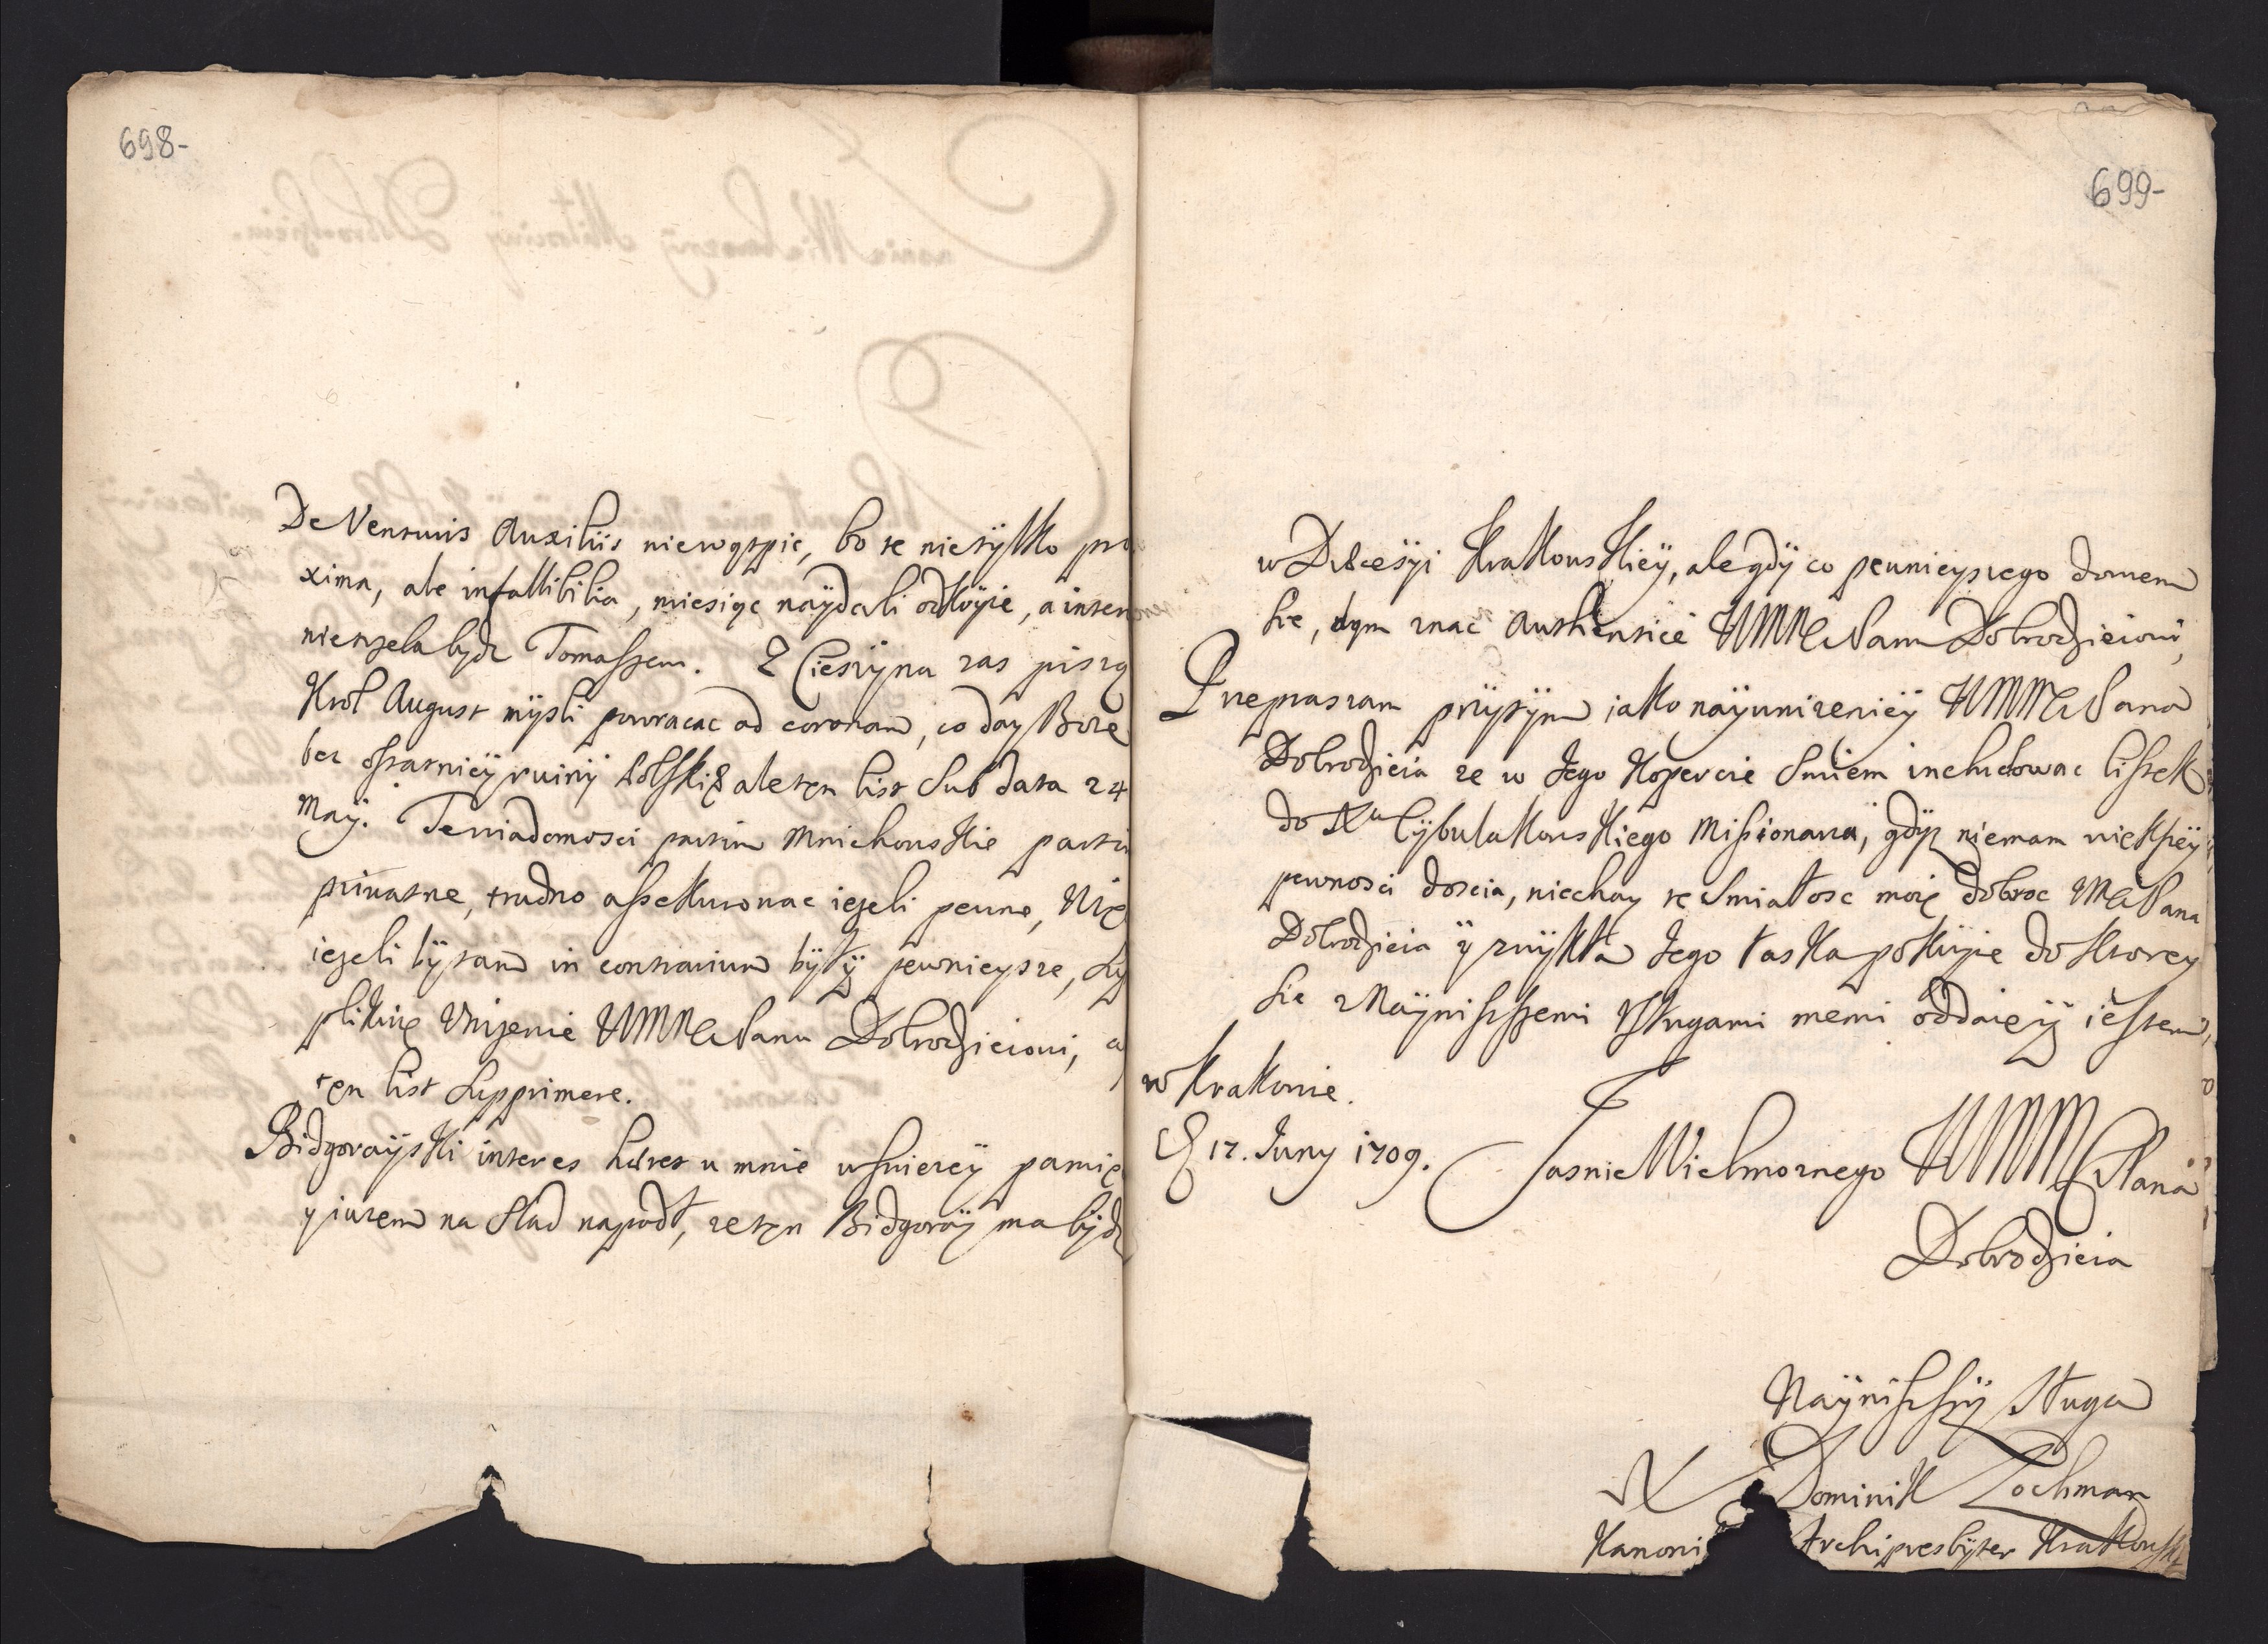 698-
De Venturis Auxiliis niewątpie, bo te nietylko pro
xima, ale infallibilia, miesiąc naÿdali odkrÿie, a interim
nietrzeba bÿdz Tomaszem. Z Cieszÿna zas piszą
Krol August mÿsli powracac ad coronam, co day Boze
bez ostatnieÿ ruinÿ Polski ale ten list Sub data 24
Maÿ. Te wiadomosci partim Mnichowskie partim
privatne, trudno assekurowac iezeli pewne,
iezeli bÿ tam in contrarium bÿłÿ pewnieysze, Su
plikuię Unizenie WMM Panu Dobrodzieiowi,
ten list Supprimere.
Bidgoraÿski interes haeret u mnie w swiezeÿ pamię
y iuzem na Slad napadł, ze ten Bidgoraÿ ma bÿdz
699-
w Diecesÿi Krakowskieÿ, ale gdÿ co pewnieyszego dowiem
sie, dam znac Authentice WMM Panu Dobrodzieiowi,
Przepraszam przÿtÿm iako naÿunizenieÿ WMM Pana
Dobrodzieia ze w Jego Kopercie Smiem includowac listek
do Xa Cÿbulakowskiego Missionarza, gdÿz niemam wiekszeÿ
pewnosci doscia, niechay te Smiałosc moię dobroc WM Pana
Dobrodzieia ÿ zwÿkła Jego łaska pokrÿie do ktorey
sie z Naÿnisszemi Usługami memi oddaię ÿ iestem,
w Krakowie.
D 17. Juny 1709.
Jasnie Wielmoznego WMM Pana
Dobrodzieia
Naÿnisszÿ Sługa
X Dominik Lochman
Kanoni Archipresbÿter Krakowski